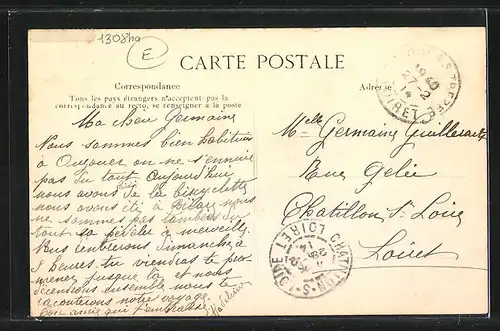 1308ha
E
CARTE POSTALE
Correspondance
Tous les pays étrangers n'acceptent pas la
correspondance au recto, se renseigner à la poste
Adresse
Ma chère Germaine
Nous sommes bien habituées
à Ouzouer on ne s'ennuie
pas du tout. Aujourd'hui
nous avons fait de la bicyclette
nous avons été à
ne sommes pas tombées du
tout la pédale à merveille
Nous rentrerons dimanche à
5 heures. tu viendras te pro-
mener jusque là et nous
descendrons ensemble nous te
raconterons notre voyage.
Ton amie qui t'embrasse
Madeleine
Mlle Germaine
Rue Gelée
Chatillon s/ Loire
Loiret
27-2
LOIRET
CHATILLON-S-LOIRE
LOIRET